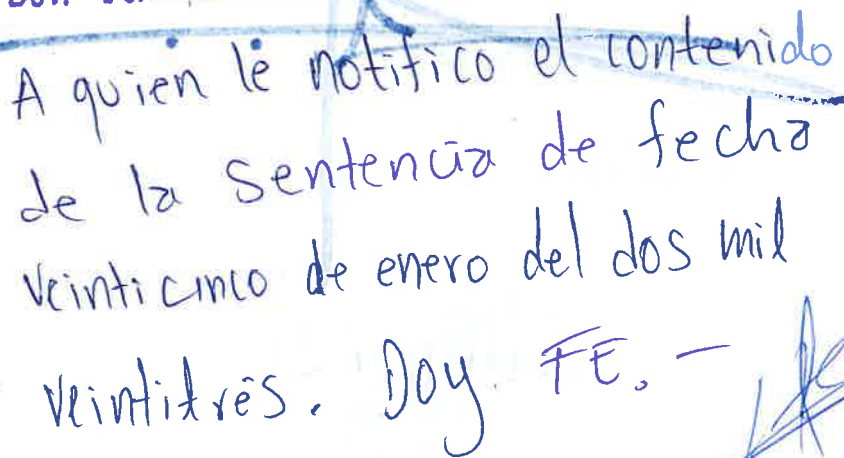 A quien le notifico el contenido
de la Sentencia de fecha
veinticinco de enero del dos mil
veintitrés. Doy FE. -